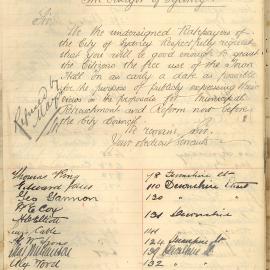 The Mayor of Sydney
Sir
We the undersigned Ratepayers of
the City of Sydney Respectfully request
that you will be good enough to grant
the Citizens the free use of the Town
Hall on as early a date as possible
for the purpose of publicly expressing their
views on the proposals for Municipal
Retrenchment and Reform now before
the City Council.
We remain, Sir,
Your obedient servants
Refused by
Mayor
Thomas King 78 Devonshire St
Edward 110 Devonshire Street
Geo Gannon 130 "
W E Coy
134 Devonshire
144
124 Devonshire St
139 Devonshire St
Ford 132 "